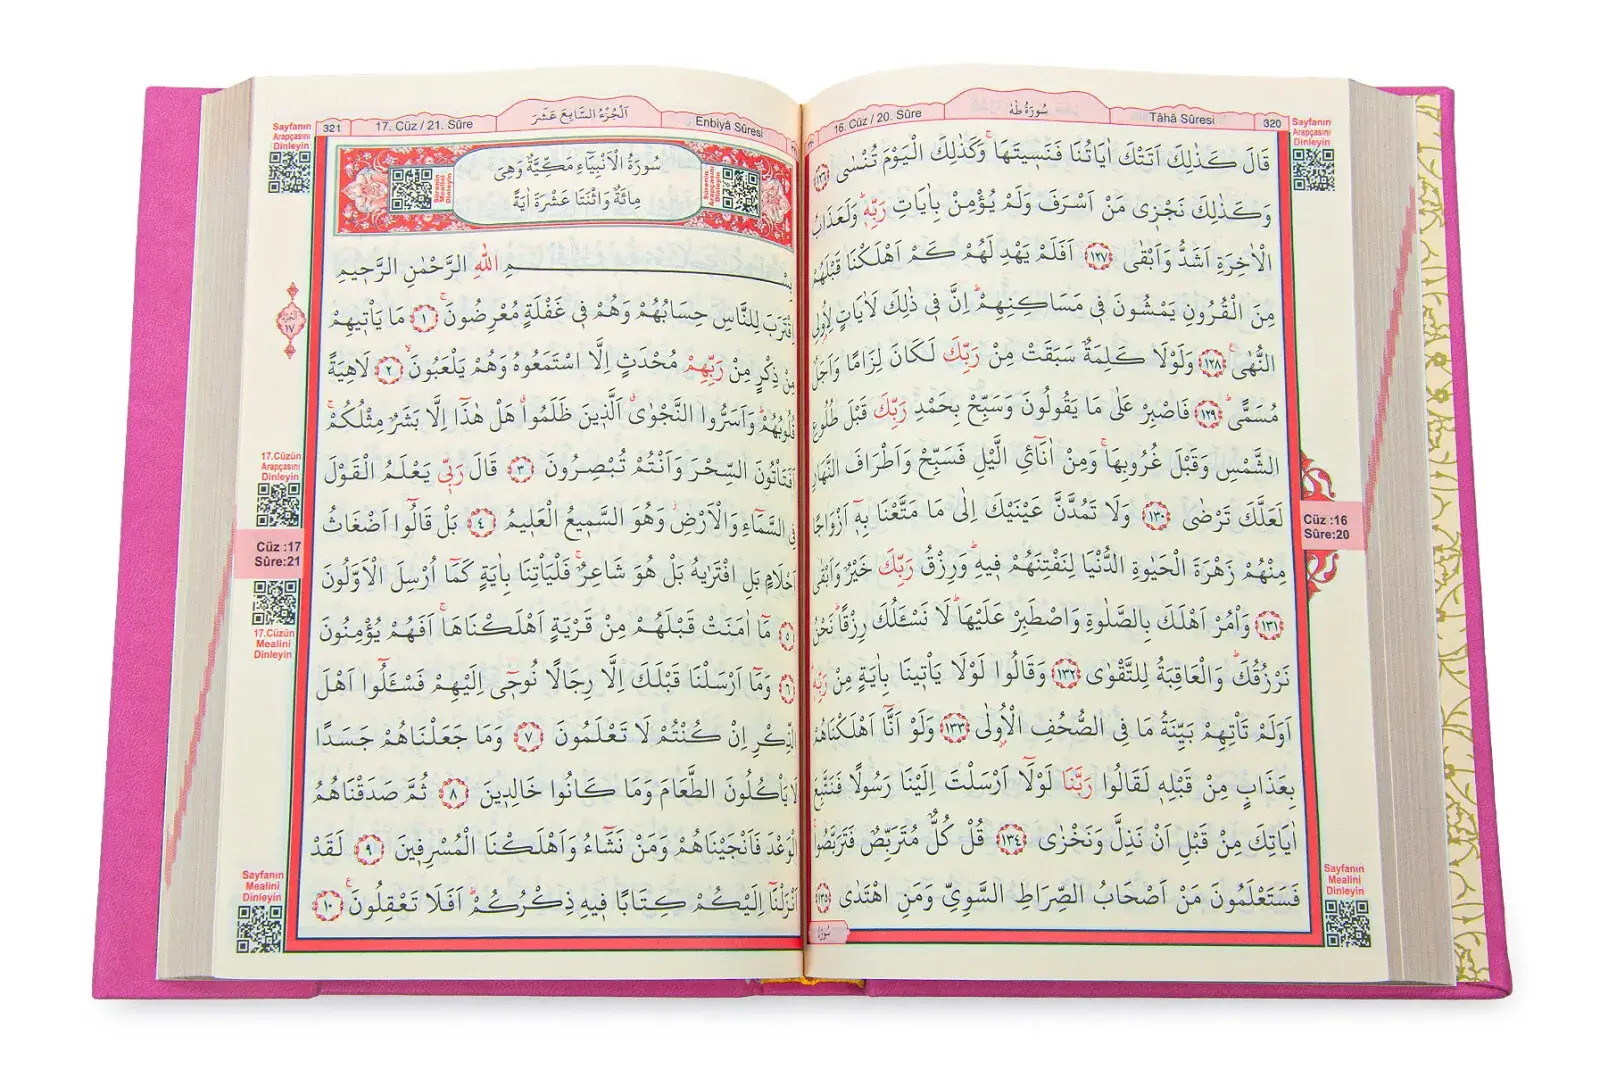 سُورَةُ طٰهٰ
16. Cüz / 20. Sûre
Tâhâ Sûresi
320
Sayfanın
Arapçasını
Dinleyin
قَالَ كَذٰلِكَ اَتَتْكَ اٰيَاتُنَا فَنَسٖيتَهَاۚ وَكَذٰلِكَ الْيَوْمَ تُنْسٰى ﴿١٢٦﴾
وَكَذٰلِكَ نَجْزٖى مَنْ اَسْرَفَ وَلَمْ يُؤْمِنْ بِاٰيَاتِ رَبِّهٖؕ وَلَعَذَابُ
الْاٰخِرَةِ اَشَدُّ وَاَبْقٰى ﴿١٢٧﴾ اَفَلَمْ يَهْدِ لَهُمْ كَمْ اَهْلَكْنَا قَبْلَهُمْ
مِنَ الْقُرُونِ يَمْشُونَ فٖى مَسَاكِنِهِمْؕ اِنَّ فٖى ذٰلِكَ لَاٰيَاتٍ لِاُولِى
النُّهٰىࣖ ﴿١٢٨﴾ وَلَوْلَا كَلِمَةٌ سَبَقَتْ مِنْ رَبِّكَ لَكَانَ لِزَامًا وَاَجَلٌ
مُسَمًّىؕ ﴿١٢٩﴾ فَاصْبِرْ عَلٰى مَا يَقُولُونَ وَسَبِّحْ بِحَمْدِ رَبِّكَ قَبْلَ طُلُوعِ
الشَّمْسِ وَقَبْلَ غُرُوبِهَاۚ وَمِنْ اٰنَآئِ الَّيْلِ فَسَبِّحْ وَاَطْرَافَ النَّهَارِ
لَعَلَّكَ تَرْضٰى ﴿١٣٠﴾ وَلَا تَمُدَّنَّ عَيْنَيْكَ اِلٰى مَا مَتَّعْنَا بِهٖٓ اَزْوَاجًا
مِنْهُمْ زَهْرَةَ الْحَيٰوةِ الدُّنْيَا لِنَفْتِنَهُمْ فٖيهِؕ وَرِزْقُ رَبِّكَ خَيْرٌ وَاَبْقٰى
﴿١٣١﴾ وَاْمُرْ اَهْلَكَ بِالصَّلٰوةِ وَاصْطَبِرْ عَلَيْهَاؕ لَا نَسْـَٔلُكَ رِزْقًاؕ نَحْنُ
نَرْزُقُكَؕ وَالْعَاقِبَةُ لِلتَّقْوٰى ﴿١٣٢﴾ وَقَالُوا لَوْلَا يَاْتٖينَا بِاٰيَةٍ مِنْ رَبِّهٖؕ
اَوَلَمْ تَاْتِهِمْ بَيِّنَةُ مَا فِى الصُّحُفِ الْاُولٰى ﴿١٣٣﴾ وَلَوْ اَنَّٓا اَهْلَكْنَاهُمْ
بِعَذَابٍ مِنْ قَبْلِهٖ لَقَالُوا رَبَّنَا لَوْلَٓا اَرْسَلْتَ اِلَيْنَا رَسُولًا فَنَتَّبِعَ
اٰيَاتِكَ مِنْ قَبْلِ اَنْ نَذِلَّ وَنَخْزٰى ﴿١٣٤﴾ قُلْ كُلٌّ مُتَرَبِّصٌ فَتَرَبَّصُواۚ
فَسَتَعْلَمُونَ مَنْ اَصْحَابُ الصِّرَاطِ السَّوِىِّ وَمَنِ اهْتَدٰى ﴿١٣٥﴾
سُورَةُ
Cüz :16
Sûre:20
Sayfanın
Mealini
Dinleyin
اَلْجُزْءُ السَّابِعَ عَشَرَ
321
17. Cüz / 21. Sûre
Enbiyâ Sûresi
Sayfanın
Arapçasını
Dinleyin
سُورَةُ الْاَنْبِيَٓاءِ مَكِّيَّةٌ وَهِىَ
مِائَةٌ وَاثْنَتَا عَشْرَةَ اٰيَةً
Sûrenin
Arapçasını
Dinleyin
Sûrenin
Mealini
Dinleyin
بِسْمِ اللّٰهِ الرَّحْمٰنِ الرَّحٖيمِ
اِقْتَرَبَ لِلنَّاسِ حِسَابُهُمْ وَهُمْ فٖى غَفْلَةٍ مُعْرِضُونَۚ ﴿١﴾ مَا يَاْتٖيهِمْ
مِنْ ذِكْرٍ مِنْ رَبِّهِمْ مُحْدَثٍ اِلَّا اسْتَمَعُوهُ وَهُمْ يَلْعَبُونَۙ ﴿٢﴾ لَاهِيَةً
قُلُوبُهُمْؕ وَاَسَرُّوا النَّجْوٰىۗ اَلَّذٖينَ ظَلَمُواۗ هَلْ هٰذَٓا اِلَّا بَشَرٌ مِثْلُكُمْۚ
اَفَتَاْتُونَ السِّحْرَ وَاَنْتُمْ تُبْصِرُونَ ﴿٣﴾ قَالَ رَبّٖى يَعْلَمُ الْقَوْلَ
فِى السَّمَٓاءِ وَالْاَرْضِؗ وَهُوَ السَّمٖيعُ الْعَلٖيمُ ﴿٤﴾ بَلْ قَالُٓوا اَضْغَاثُ
اَحْلَامٍ بَلِ افْتَرٰيهُ بَلْ هُوَ شَاعِرٌۚ فَلْيَاْتِنَا بِاٰيَةٍ كَمَٓا اُرْسِلَ الْاَوَّلُونَ
﴿٥﴾ مَٓا اٰمَنَتْ قَبْلَهُمْ مِنْ قَرْيَةٍ اَهْلَكْنَاهَاۚ اَفَهُمْ يُؤْمِنُونَ
﴿٦﴾ وَمَٓا اَرْسَلْنَا قَبْلَكَ اِلَّا رِجَالًا نُوحٖٓى اِلَيْهِمْ فَسْـَٔلُٓوا اَهْلَ
الذِّكْرِ اِنْ كُنْتُمْ لَا تَعْلَمُونَ ﴿٧﴾ وَمَا جَعَلْنَاهُمْ جَسَدًا
لَا يَاْكُلُونَ الطَّعَامَ وَمَا كَانُوا خَالِدٖينَ ﴿٨﴾ ثُمَّ صَدَقْنَاهُمُ
الْوَعْدَ فَاَنْجَيْنَاهُمْ وَمَنْ نَشَٓاءُ وَاَهْلَكْنَا الْمُسْرِفٖينَ ﴿٩﴾ لَقَدْ
اَنْزَلْنَٓا اِلَيْكُمْ كِتَابًا فٖيهِ ذِكْرُكُمْؕ اَفَلَا تَعْقِلُونَࣖ ﴿١٠﴾
اَلْجُزْءُ
١٧
17.Cüzün
Arapçasını
Dinleyin
Cüz :17
Sûre:21
17.Cüzün
Mealini
Dinleyin
Sayfanın
Mealini
Dinleyin